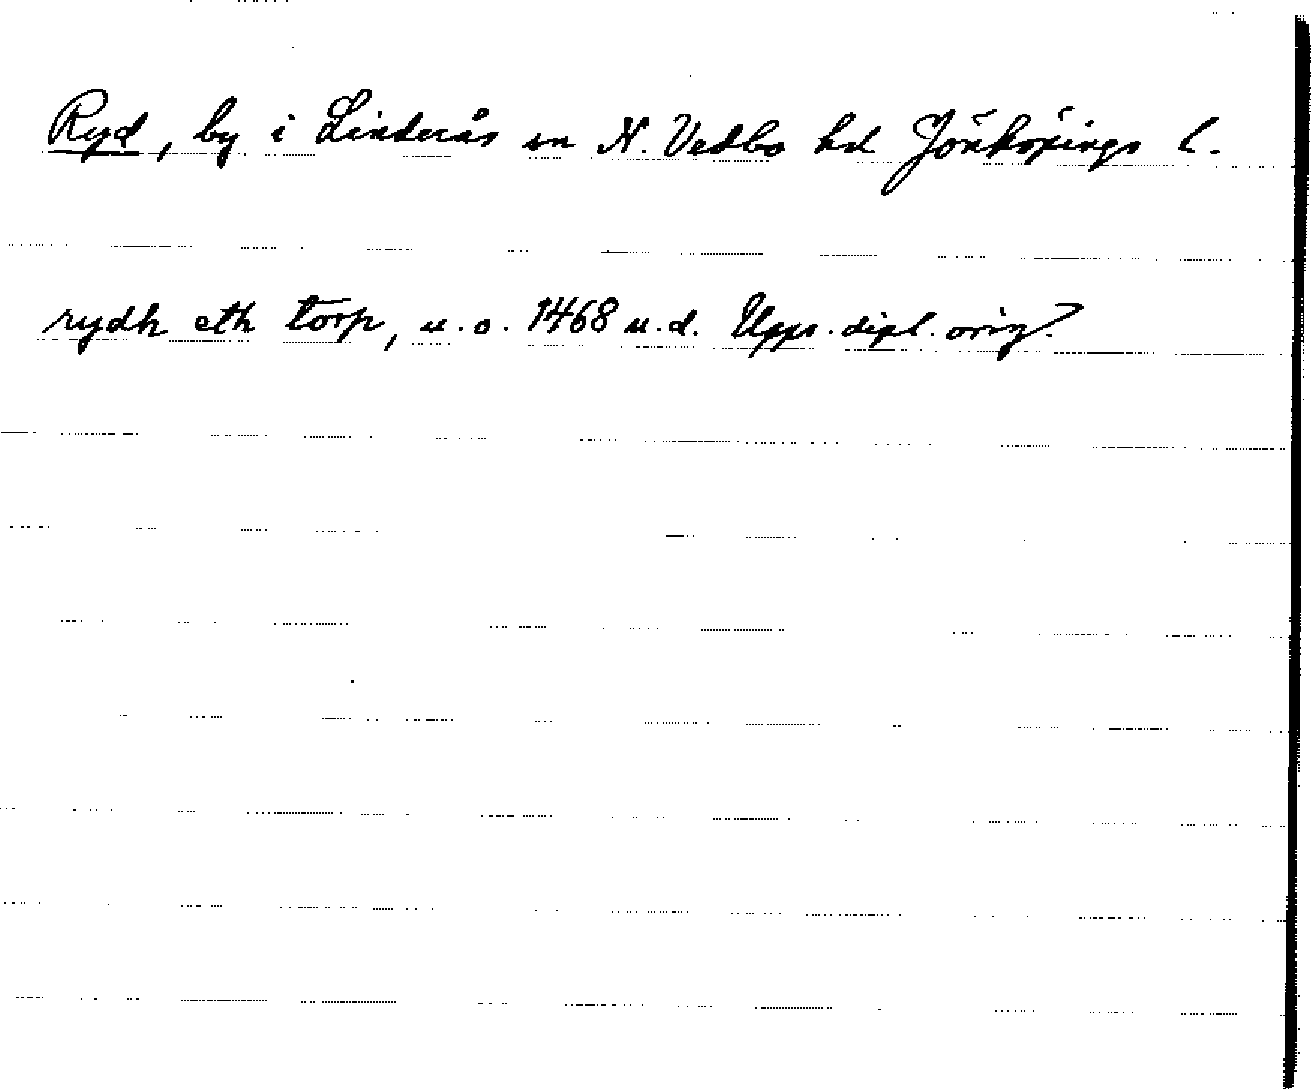 Ryd, by i Linderås sn N. Vedbo hd Jönköpings l.
rydh eth torp, u.o. 1468 u.d. Upps. dipl. orig.